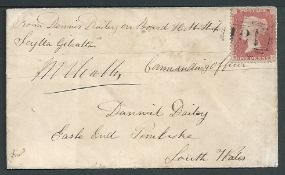 From Dannid Dailey on Board H.M. Ship
Scylla Gibralta
Commanding Officer
Dannid Dailey
East End Pembroke
South Wales